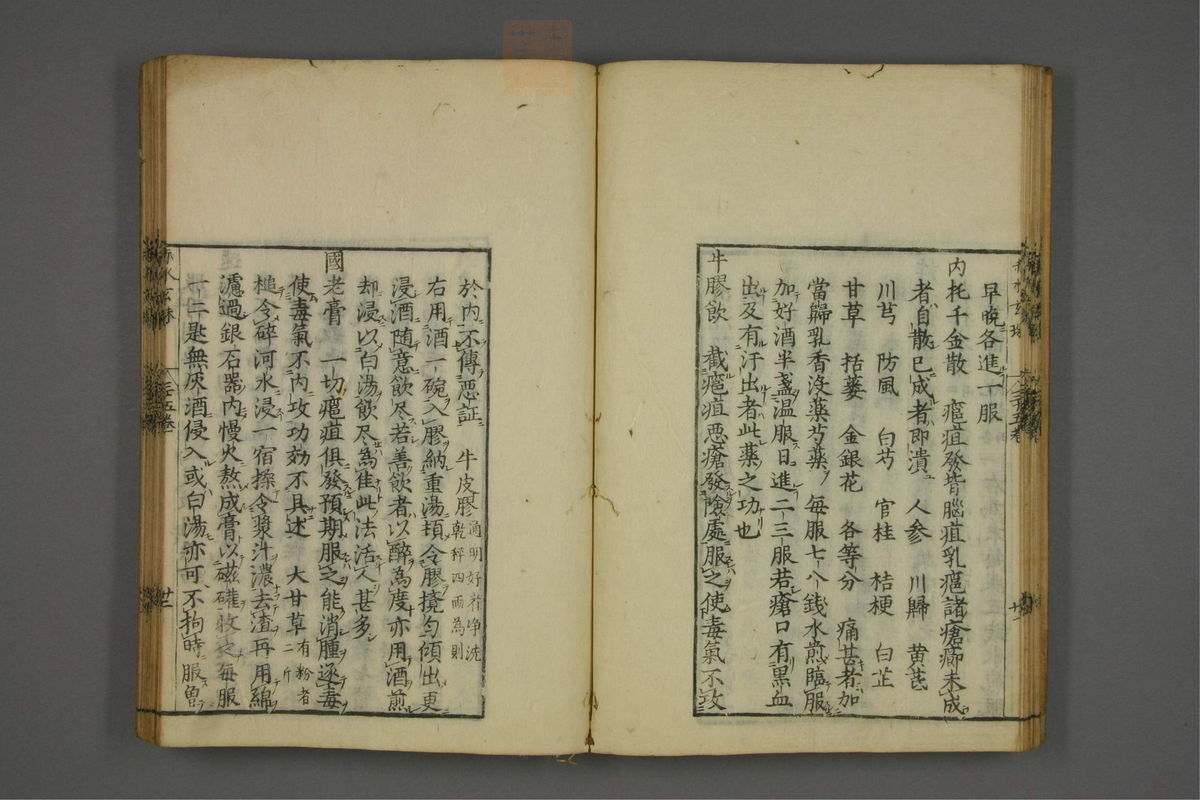 早晩各進一服
内托千金散　癰疽發背腦疽乳癰諸瘡癤未成
者自散已成者即潰　人参　川歸　黄芪
川芎　防風　白芍　官桂　桔梗　白芷
甘草　括蔞　金銀花　各等分　痛甚者加
當歸乳香沒薬芍薬　毎服七八銭水煎臨服
加好酒半盞温服日進二三服若瘡口有黒血
出及有汗出者此薬之功也
牛膠飲　截癰疽悪瘡發險處服之使毒氣不攻
於内不傳悪証　牛皮膠通明好者净洗乾秤四両為則
右用酒一碗入膠納重湯頓令膠攪匀傾出更
浸酒随意飲尽若善飲者以醉為度亦用酒煎
却浸以白湯飲尽為佳此法活人甚多
國老膏　一切癰疽俱發預期服之能消腫逐毒
使毒氣不内攻功効不具述　大甘草有粉者二斤
槌令碎河水浸一宿揉令漿汁濃去渣再用綿
濾過銀石器内慢火熬成膏以磁礶收之毎服
一二匙無灰酒侵入或白湯亦可不拘時服曽